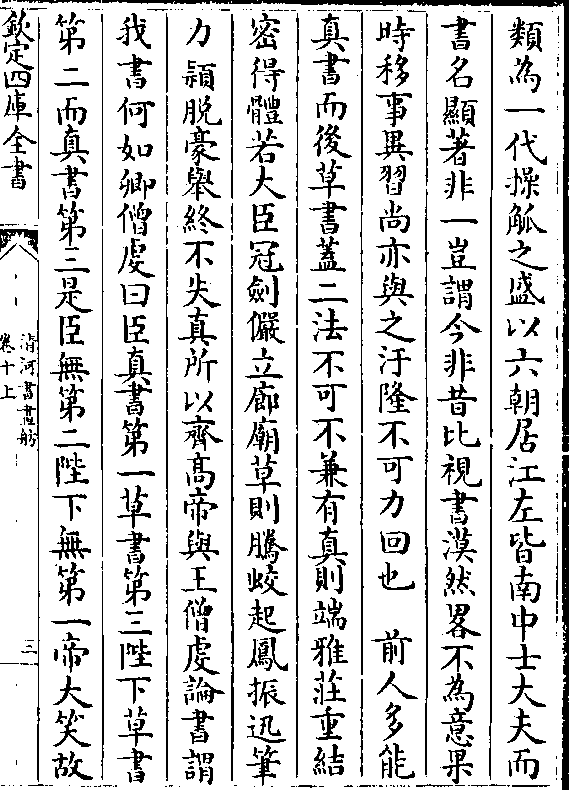 類為一代操觚之盛以六朝居江左皆南中士大夫而
書名顯著非一豈謂今非昔比視書漠然畧不為意果
時移事異習尚亦與之汙隆不可力回也　前人多能
真書而後草書蓋二法不可不兼有真則端雅莊重結
密得體若大臣冠劍儼立廊廟草則騰蛟起鳳振迅筆
力穎脫豪舉終不失真所以齊高帝與王僧虔論書謂
我書何如卿僧虔曰臣真書第一草書第三陛下草書
第二而真書第三是臣無第二陛下無第一帝大笑故
欽定四庫全書
清河書畫舫
卷十上
三